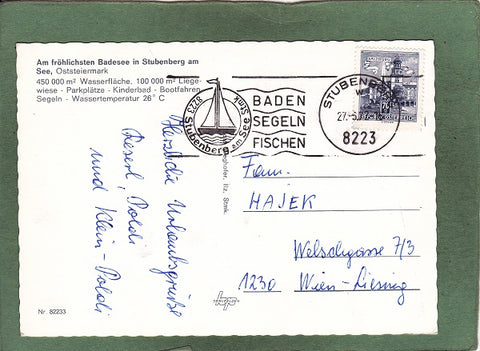 Am fröhlichsten Badesee in Stubenberg am
See, Oststeiermark
450 000 m² Wasserfläche. 100 000 m² Liege-
wiese - Parkplätze - Kinderbad - Bootfahren
Segeln - Wassertemperatur 26° C
8223
Stmk
Stubenberg am See
BADEN
SEGELN
FISCHEN
STUBENBERG
8223
Herzliche Urlaubsgrüße
Poldi
und Klein-Poldi
Fam.
HAJEK
Welschgasse 7/3
1230 Wien-Liesing
Nr. 82233